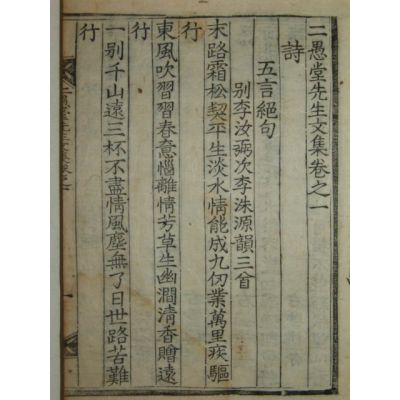 二愚堂先生文集卷之一
詩
五言絕句
別李汝珮次李洙源韻三首
末路霜松契平生淡水情能成九仞業萬里疾驅
行
東風吹習習春意惱離情芳草生幽澗清香贈遠
行
一別千山遠三杯不盡情風塵無了日世路苦難
行